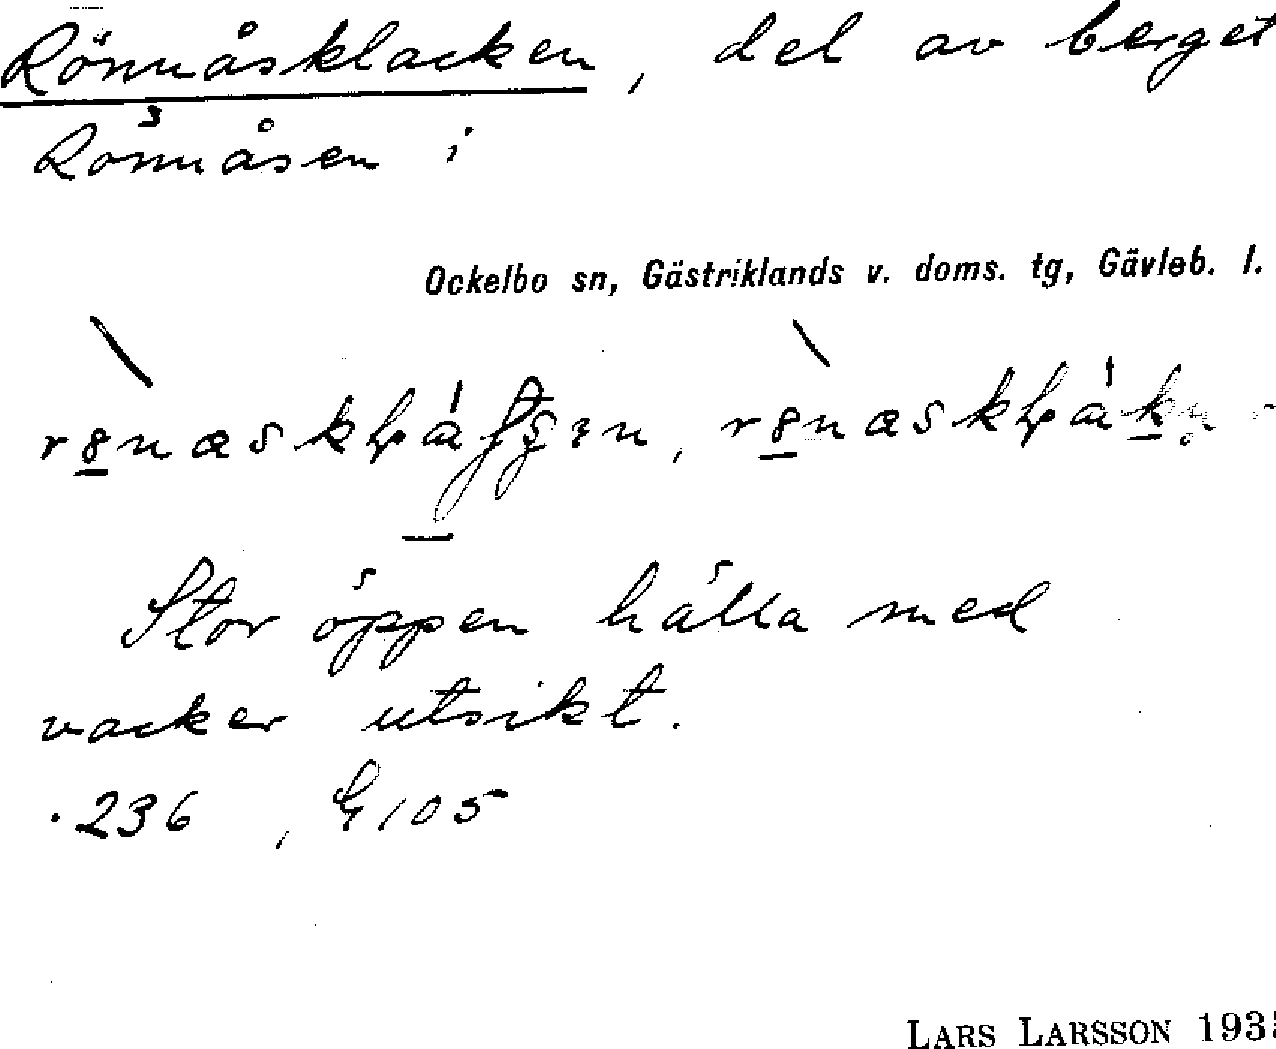 Rönnåsklacken, del av berget
Rönnåsen i
Ockelbo sn, Gästriklands v. doms. tg, Gävleb. l.
Stor öppen hälla med
vacker utsikt.
.236, G105
LARS LARSSON 193